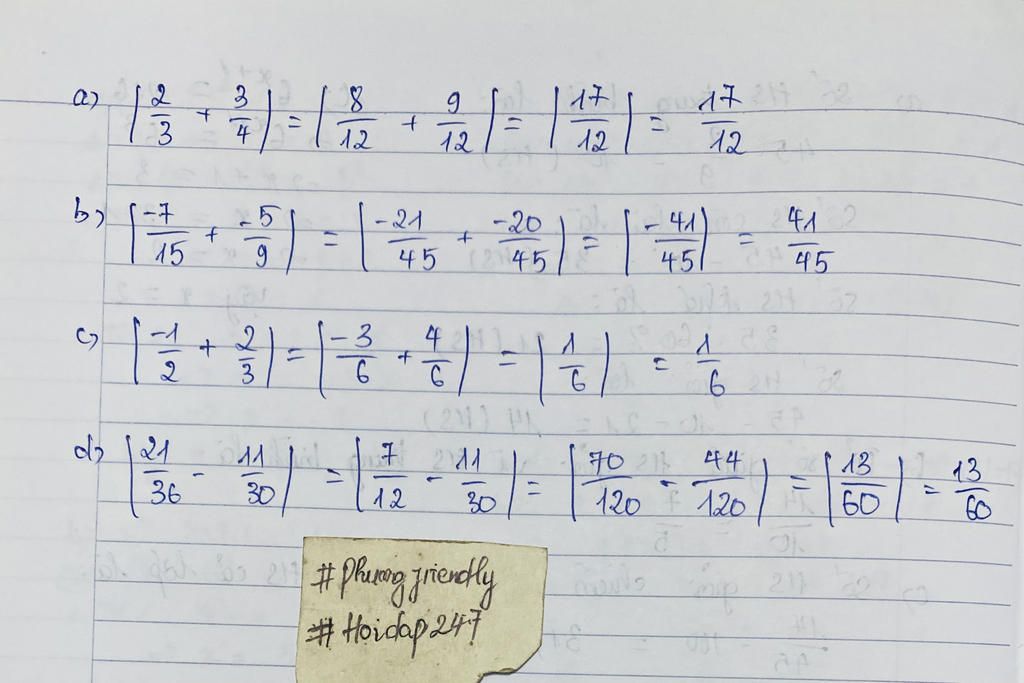 a) |2/3 + 3/4| = |8/12 + 9/12| = |17/12| = 17/12
b) |-7/15 + -5/9| = |-21/45 + -20/45| = |-41/45| = 41/45
c) |-1/2 + 2/3| = |-3/6 + 4/6| = |1/6| = 1/6
d) |21/36 - 11/30| = |7/12 - 11/30| = |70/120 - 44/120| = |13/60| = 13/60
#Phuongfriendly
#Hoidap247